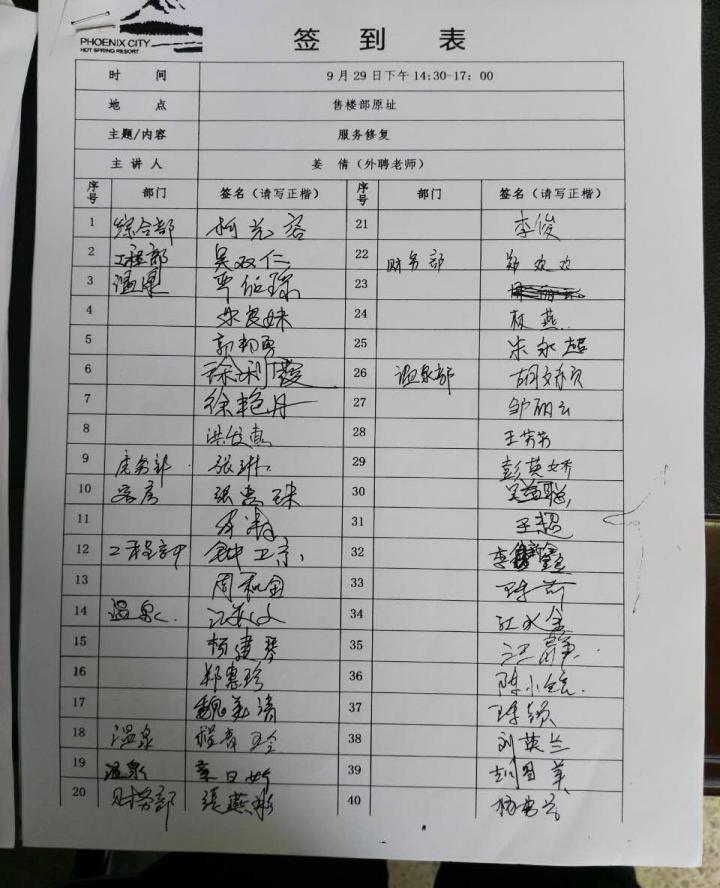 PHOENIX CITY
HOT SPRING RESORT
签 到 表
时 间 9月29日下午14:30-17:00
地 点 售楼部原址
主题/内容 服务修复
主 讲 人 姜 倩（外聘老师）
序号 部门 签名（请写正楷） 序号 部门 签名（请写正楷）
1 综合部 柯光容 21 李俊
2 工程部 吴双仁 22 财务部 郑欢欢
3 温泉 23
4 24 杨燕
5 郭初勇 25 朱永超
6 徐利霞 26 温泉部
7 徐艳丹 27 邹丽云
8 洪俊惠 28 王芳芳
9 房务部 张琳 29 彭英娇
10 客房 张忠珠 30
11 31 王超
12 工程部 钟卫京 32 李 鑫
13 周和国 33 陈莉
14 温泉 34 江水金
15 杨建琴 35 江静
16 郑惠珍 36 陈小红
17 魏美清 37 陈颖
18 温泉 程青玲 38 刘英兰
19 温泉 章日娇 39
20 财务部 张燕彬 40